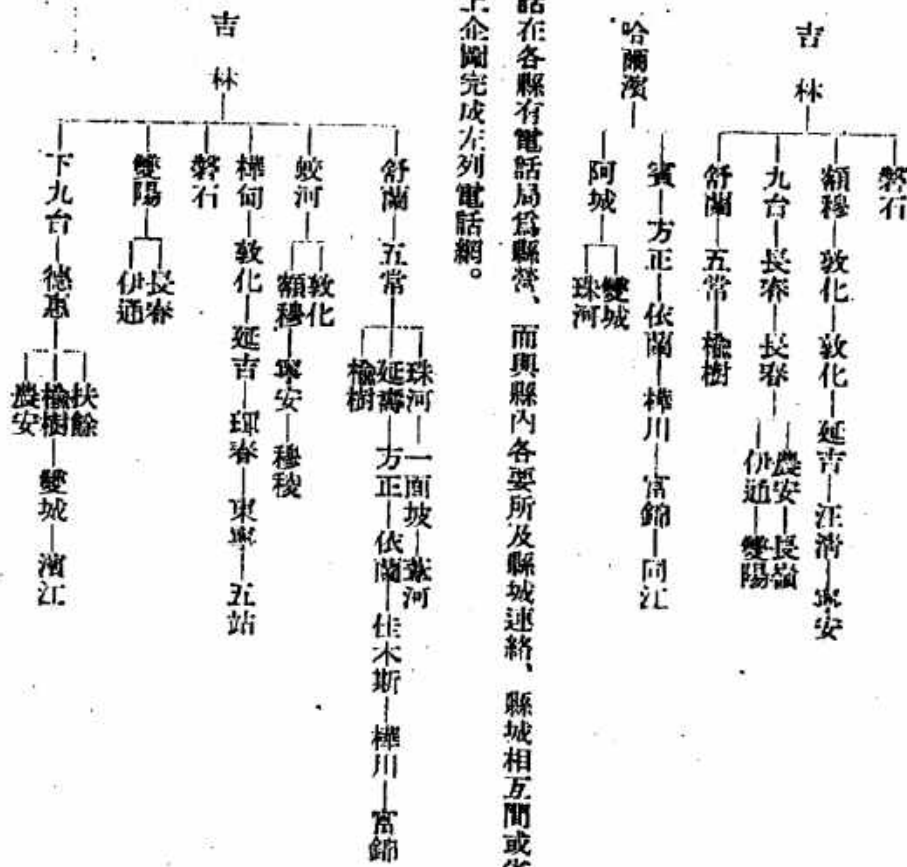 磐石
吉林
額穆—敦化—敦化—延吉—汪清—寧安
九台—長春—長春
農安—長嶺
伊通—雙陽
舒蘭—五常—楡樹
哈爾濱
賓—方正—依蘭—樺川—富錦—同江
阿城
雙城
珠河
話在各縣有電話局爲縣營、而與縣內各要所及縣城連絡、縣城相互間或
上企圖完成左列電話網。
吉林
舒蘭—五常
珠河—一面坡—葦河
延壽—方正—依蘭—佳木斯—樺川—富錦
楡樹
蛟河
敦化
額穆—寧安—穆稜
樺甸—敦化—延吉—琿春—東寧—五站
磐石
雙陽
長春
伊通
下九台—德惠
扶餘
楡樹—雙城—濱江
農安